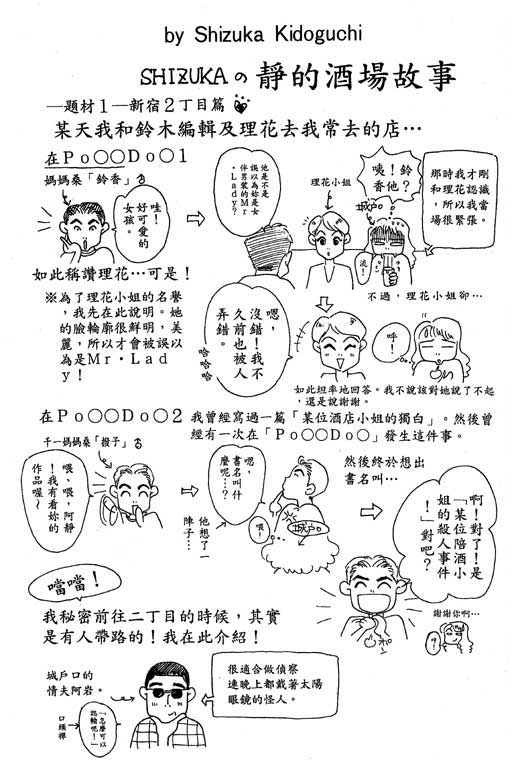 by Shizuka Kidoguchi
SHIZUKAの 靜的酒場故事
—題材1—新宿2丁目篇
某天我和鈴木編輯及理花去我常去的店…
在Po○○Do○1
媽媽桑「鈴香」♂
哇!
好可愛的
女孩。
他是不是
誤以為她是女
伴男裝的Mr
・Lady?
理花小姐
咦!鈴
香他?
城戶口
流!
那時我才剛
和理花認識
,所以我當
場很緊張。
如此稱讚理花…可是!
※為了理花小姐的名譽
,我先在此說明。她
的臉輪廓很鮮明,美
麗,所以才會被誤以
為是Mr・Lad
y!
不過,理花小姐卻…
嗯,
沒錯!我不
久前也被人
弄錯。
哈哈哈
呼!
如此坦率地回答。我不說該對她說了不起
,還是說謝謝。
在Po○○Do○2
我曾經寫過一篇「某位酒店小姐的獨白」。然後曾
經有一次在「Po○○Do○」發生這件事。
千一媽媽桑「撥子」♂
喂、喂,阿靜
!我有看妳的
作品喔~
嗯,
書名叫什
麼呢…?
他想了一
陣子…
喂!
城戶口
然後終於想出
書名叫…
啊!對了!是
「某位陪酒小
姐的殺人事件
!」對吧?
謝謝你啊…
噹噹!
我秘密前往二丁目的時候,其實
是有人帶路的!我在此介紹!
城戶口的
情夫阿岩。
口頭禪
「怎麼可以
認輸呢!」
很適合做偵察
連晚上都戴著太陽
眼鏡的怪人。